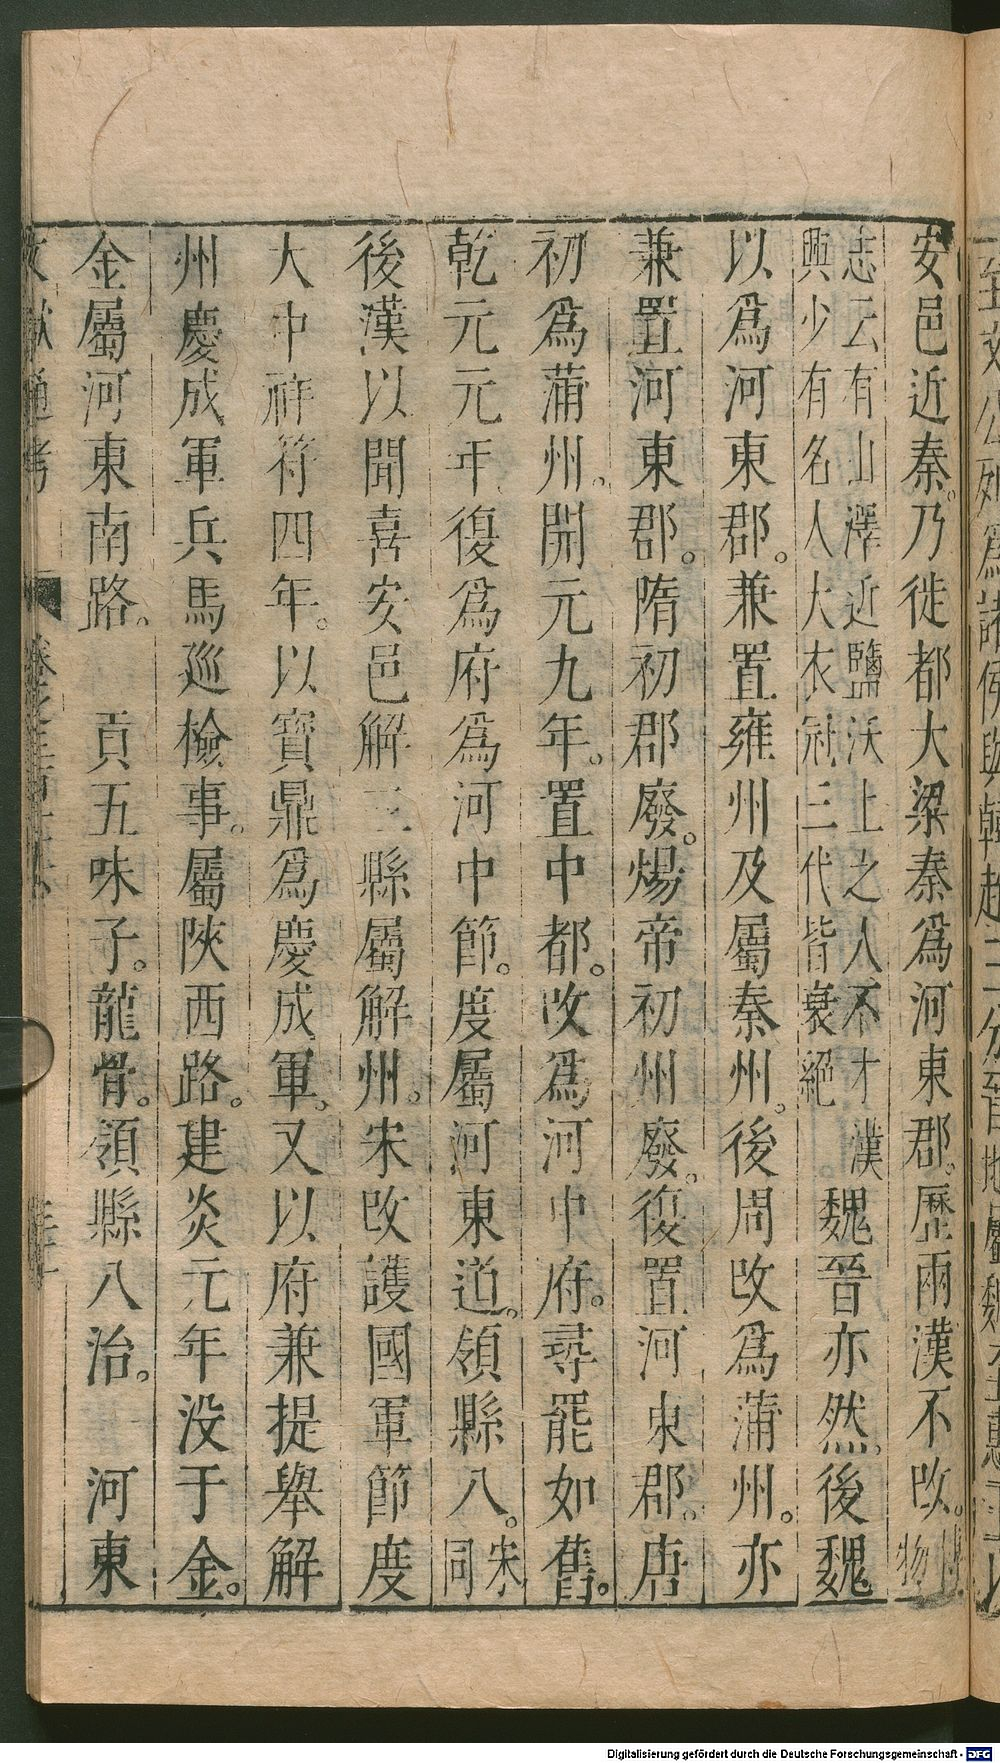 安邑近秦。乃徙都大梁秦爲河東郡。歷兩漢不改。博物
志云有山澤近鹽沃土之人不才漢
興少有名人大衣冠三代皆衰絕。
魏晉亦然。後魏
以爲河東郡。兼置雍州及屬秦州。後周改爲蒲州。亦
兼置河東郡。隋初郡廢。煬帝初州廢。復置河東郡。唐
初爲蒲州。開元九年。置中都。改爲河中府。尋罷如舊。
乾元元年復爲府爲河中節。度屬河東道。領縣八。宋同
後漢以聞喜安邑解三縣屬解州。宋改護國軍節度
大中祥符四年。以寶鼎爲慶成軍。又以府兼提舉解
州慶成軍兵馬巡檢事。屬陝西路。建炎元年没于金。
金屬河東南路。 貢五味子。龍骨。領縣八治。 河東
文獻通考
Digitalisierung gefördert durch die Deutsche Forschungsgemeinschaft - DFG